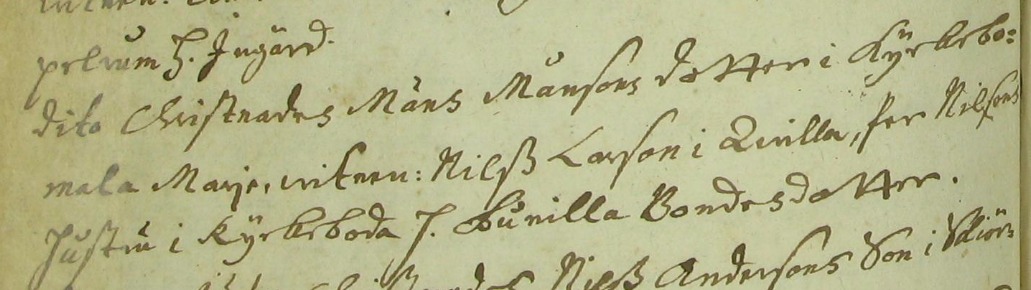 petrum H. Ingärd.
dito Christnades Måns Månsons dotter i Kyrkebo=
mala Marje, witnen: Nilß Larson i Qvilla, Per Nilsons
hustru i Kyrkeboda H. Gunilla Bondesdotter.
Nilß Andersons Son i